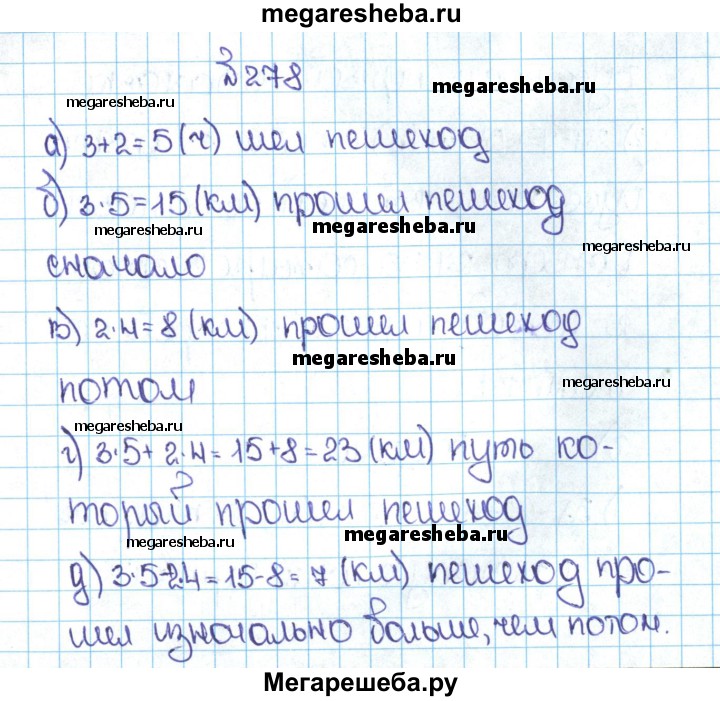 megaresheba.ru
№ 278
megaresheba.ru
megaresheba.ru
а) 3+2=5 (ч) шел пешеход
б) 3·5=15 (км) прошел пешеход
megaresheba.ru
megaresheba.ru
megaresheba.ru
сначало
в) 2·4=8 (км) прошел пешеход
megaresheba.ru
megaresheba.ru
потом
megaresheba.ru
г) 3·5+2·4=15+8=23 (км) путь ко-
торый прошел пешеход
megaresheba.ru
megaresheba.ru
д) 3·5-2·4=15-8=7 (км) пешеход про-
шел изначально больше, чем потом.
Мегарешеба.ру